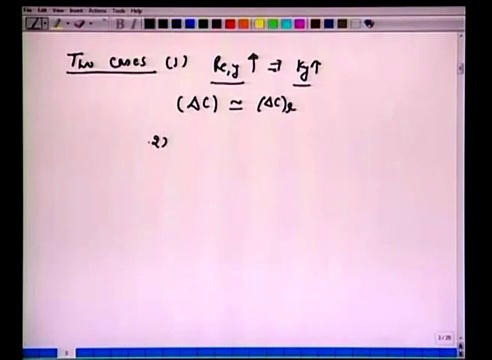 File Edit View Insert Actions Tools Help
Two cases (1) Re,y ↑ ⇒ Ky↑
(ΔC) ≃ (ΔC)r
2)